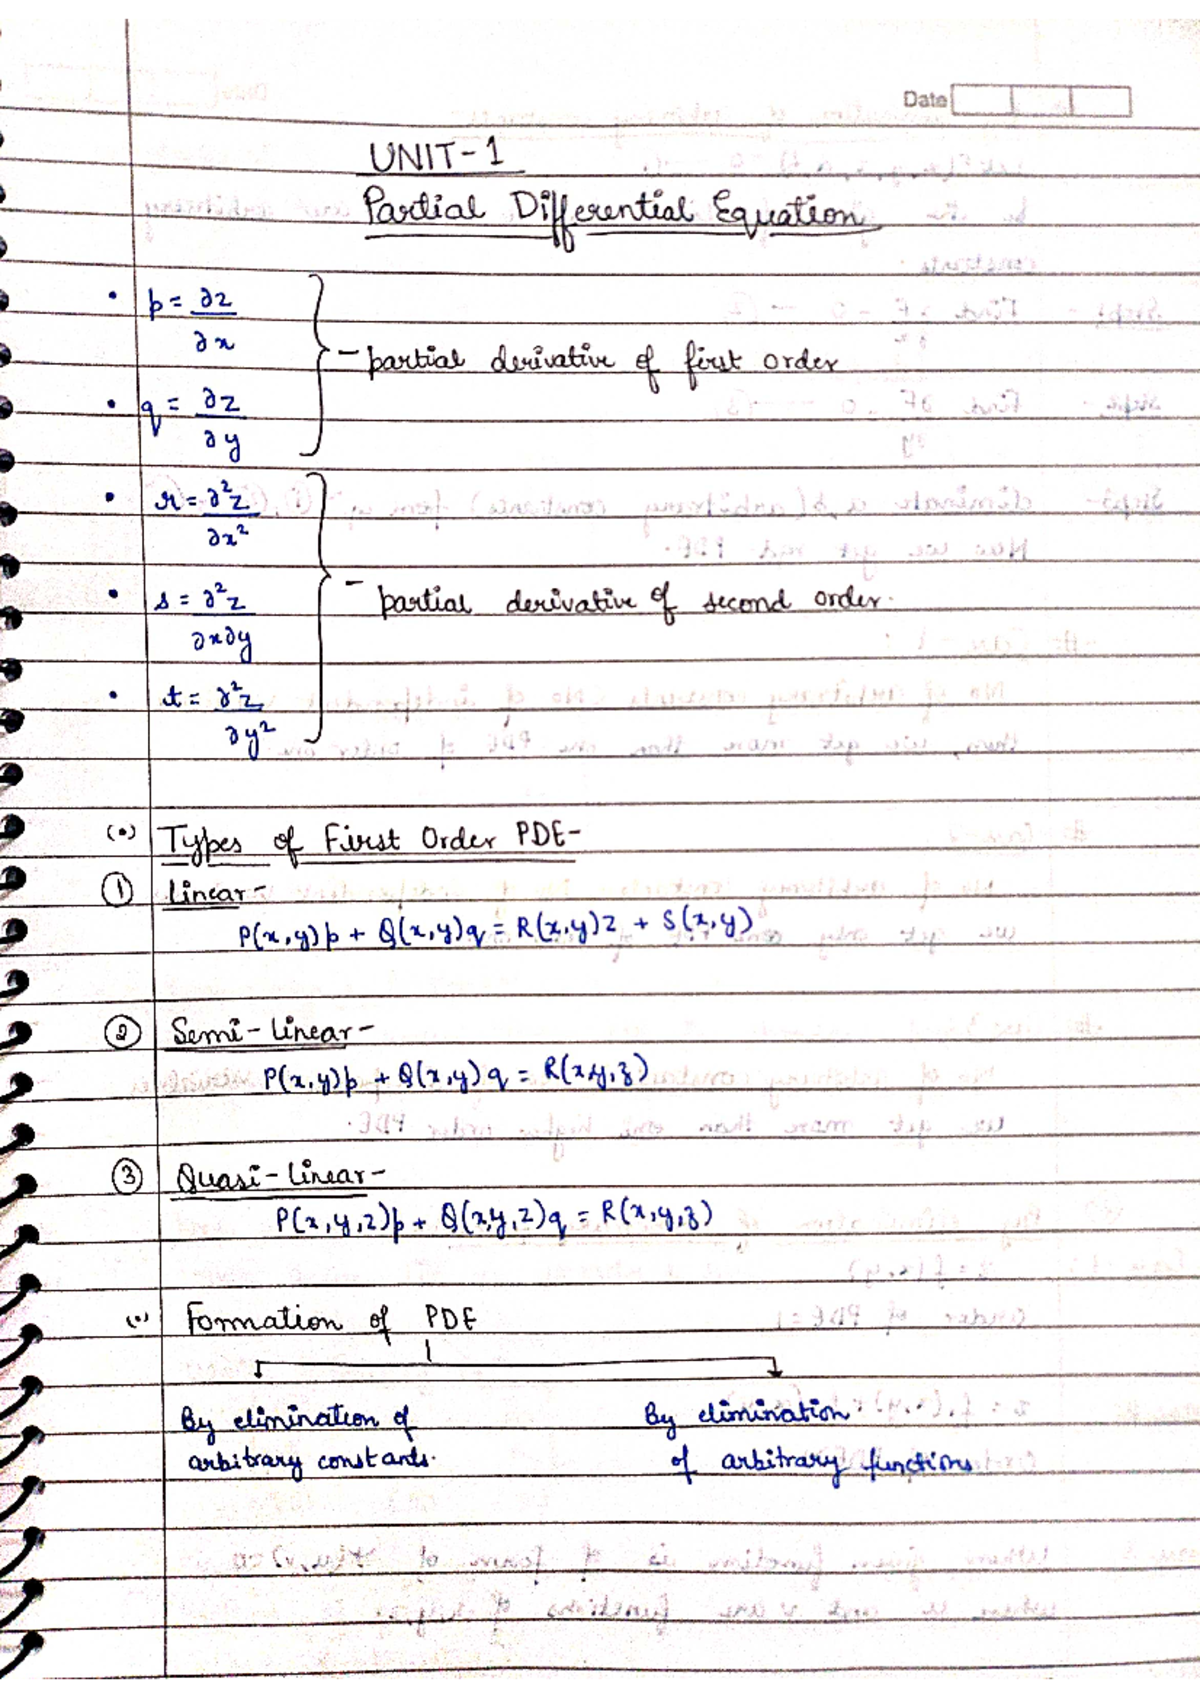 Date
UNIT-1
Partial Differential Equation
• p = ∂z/∂x
- partial derivative of first order
• q = ∂z/∂y
• r = ∂²z/∂x²
• s = ∂²z/∂x∂y
- partial derivative of second order.
• t = ∂²z/∂y²
(•) Types of First Order PDE-
① Linear-
P(x,y)p + Q(x,y)q = R(x,y)z + S(x,y)
② Semi-linear-
P(x,y)p + Q(x,y)q = R(x,y,z)
③ Quasi-linear-
P(x,y,z)p + Q(x,y,z)q = R(x,y,z)
(•) Formation of PDE
By elimination of
arbitrary constants.
By elimination
of arbitrary functions